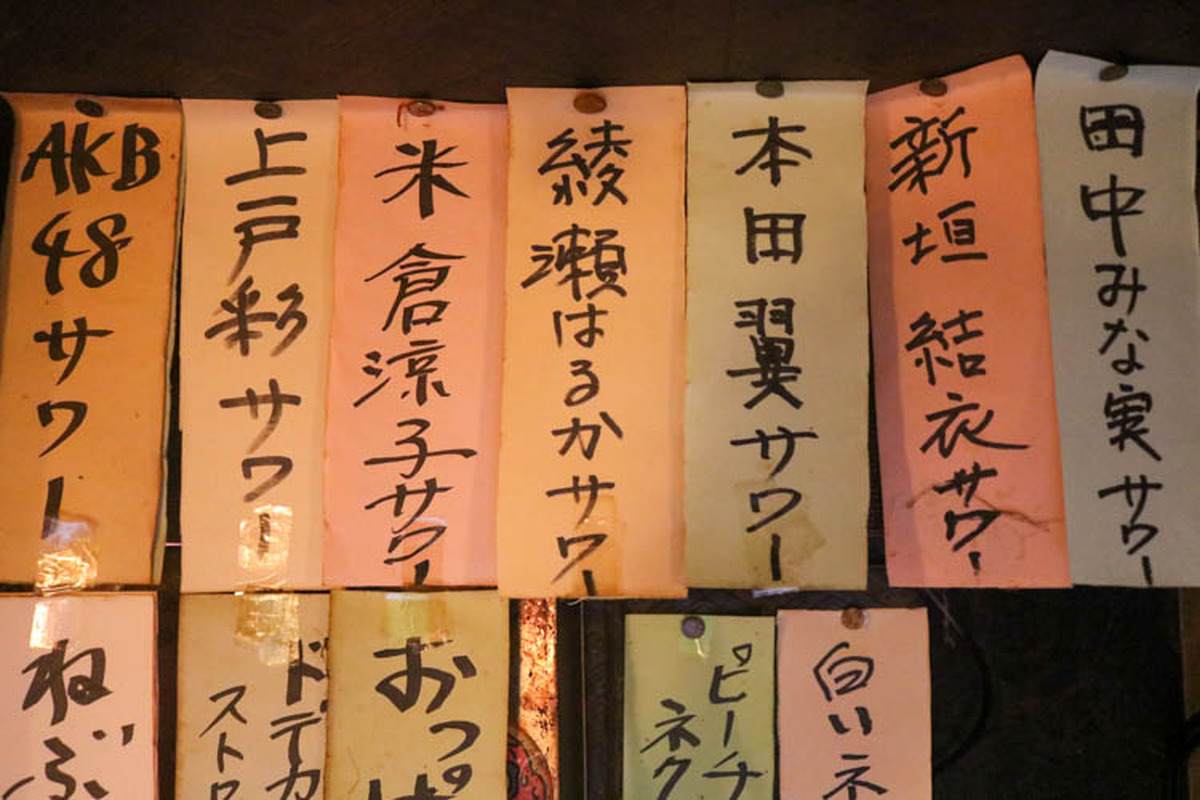 田中みな実サワー
新垣結衣サワー
本田翼サワー
綾瀬はるかサワー
米倉涼子サワー
上戸彩サワー
AKB48サワー
白いネ
ピーチ
ネク
おっぱ
ドデカ
ストロ
ねぶ